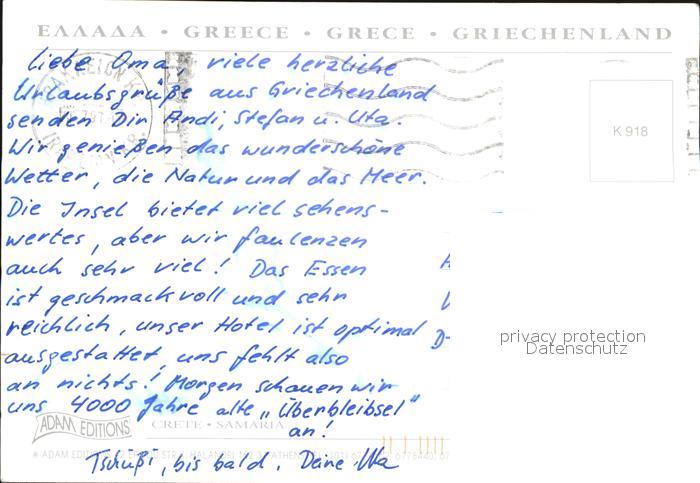 ΕΛΛΑΔΑ • GREECE • GRECE • GRIECHENLAND
Liebe Oma, viele herzliche
Urlaubsgrüße aus Griechenland
senden Dir Andi, Stefan u. Uta.
Wir genießen das wunderschöne
Wetter, die Natur und das Meer.
Die Insel bietet viel sehens-
wertes, aber wir faulenzen
auch sehr viel! Das Essen
ist geschmackvoll und sehr
reichlich, unser Hotel ist optimal
ausgestattet, uns fehlt also
an nichts! Morgen schauen wir
uns 4000 Jahre alte „Überbleibsel"
an!
Tschüßi, bis bald. Deine Uta
K 918
D-
privacy protection
Datenschutz
ADAM EDITIONS
CRETE • SAMARIA